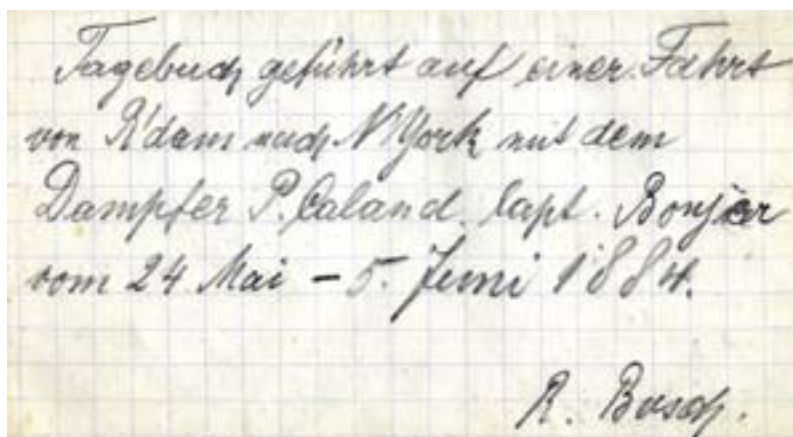 Tagebuch geführt auf einer Fahrt
von R'dam nach N'York mit dem
Dampfer P. Caland. Capt. Bonjer
vom 24 Mai - 5. Juni 1884.
R. Busch.